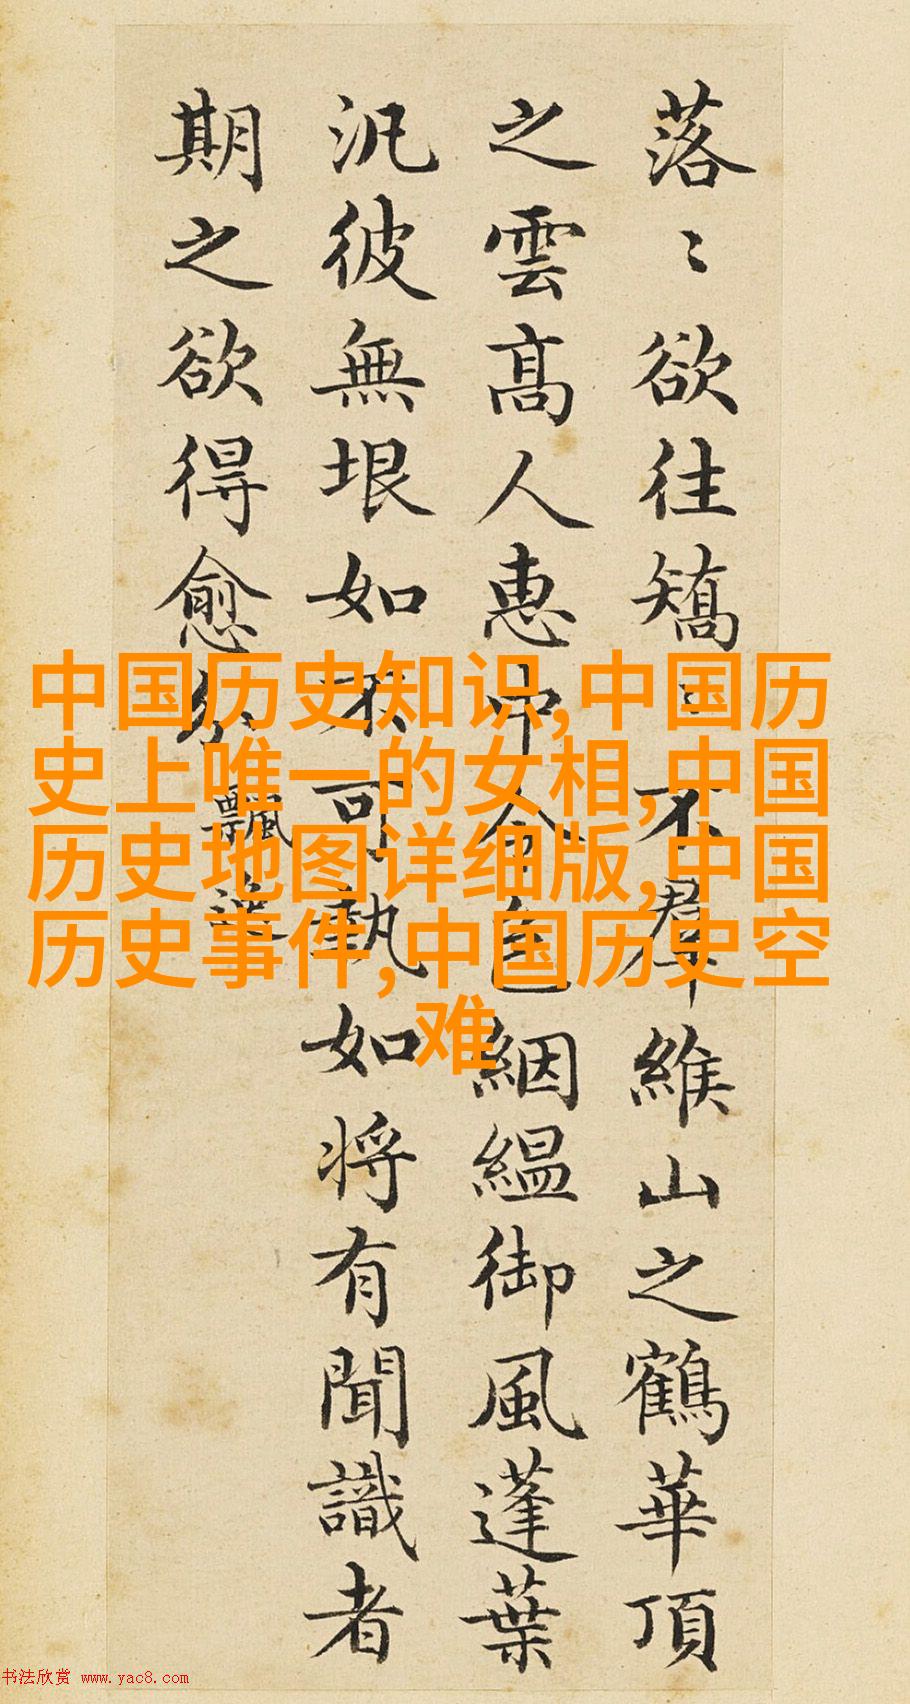 落〻欲往矯〻不羣緱山之鶴華頂
之雲高人惠中令色絪緼御風蓬葉
汎彼無垠如不可執如將有聞識者
期之欲得愈分
飄逸
中国历史知识,中国历
史上唯一的女相,中国
历史地图详细版,中国
历史事件,中国历史空
难
书法欣赏 www.yac8.com